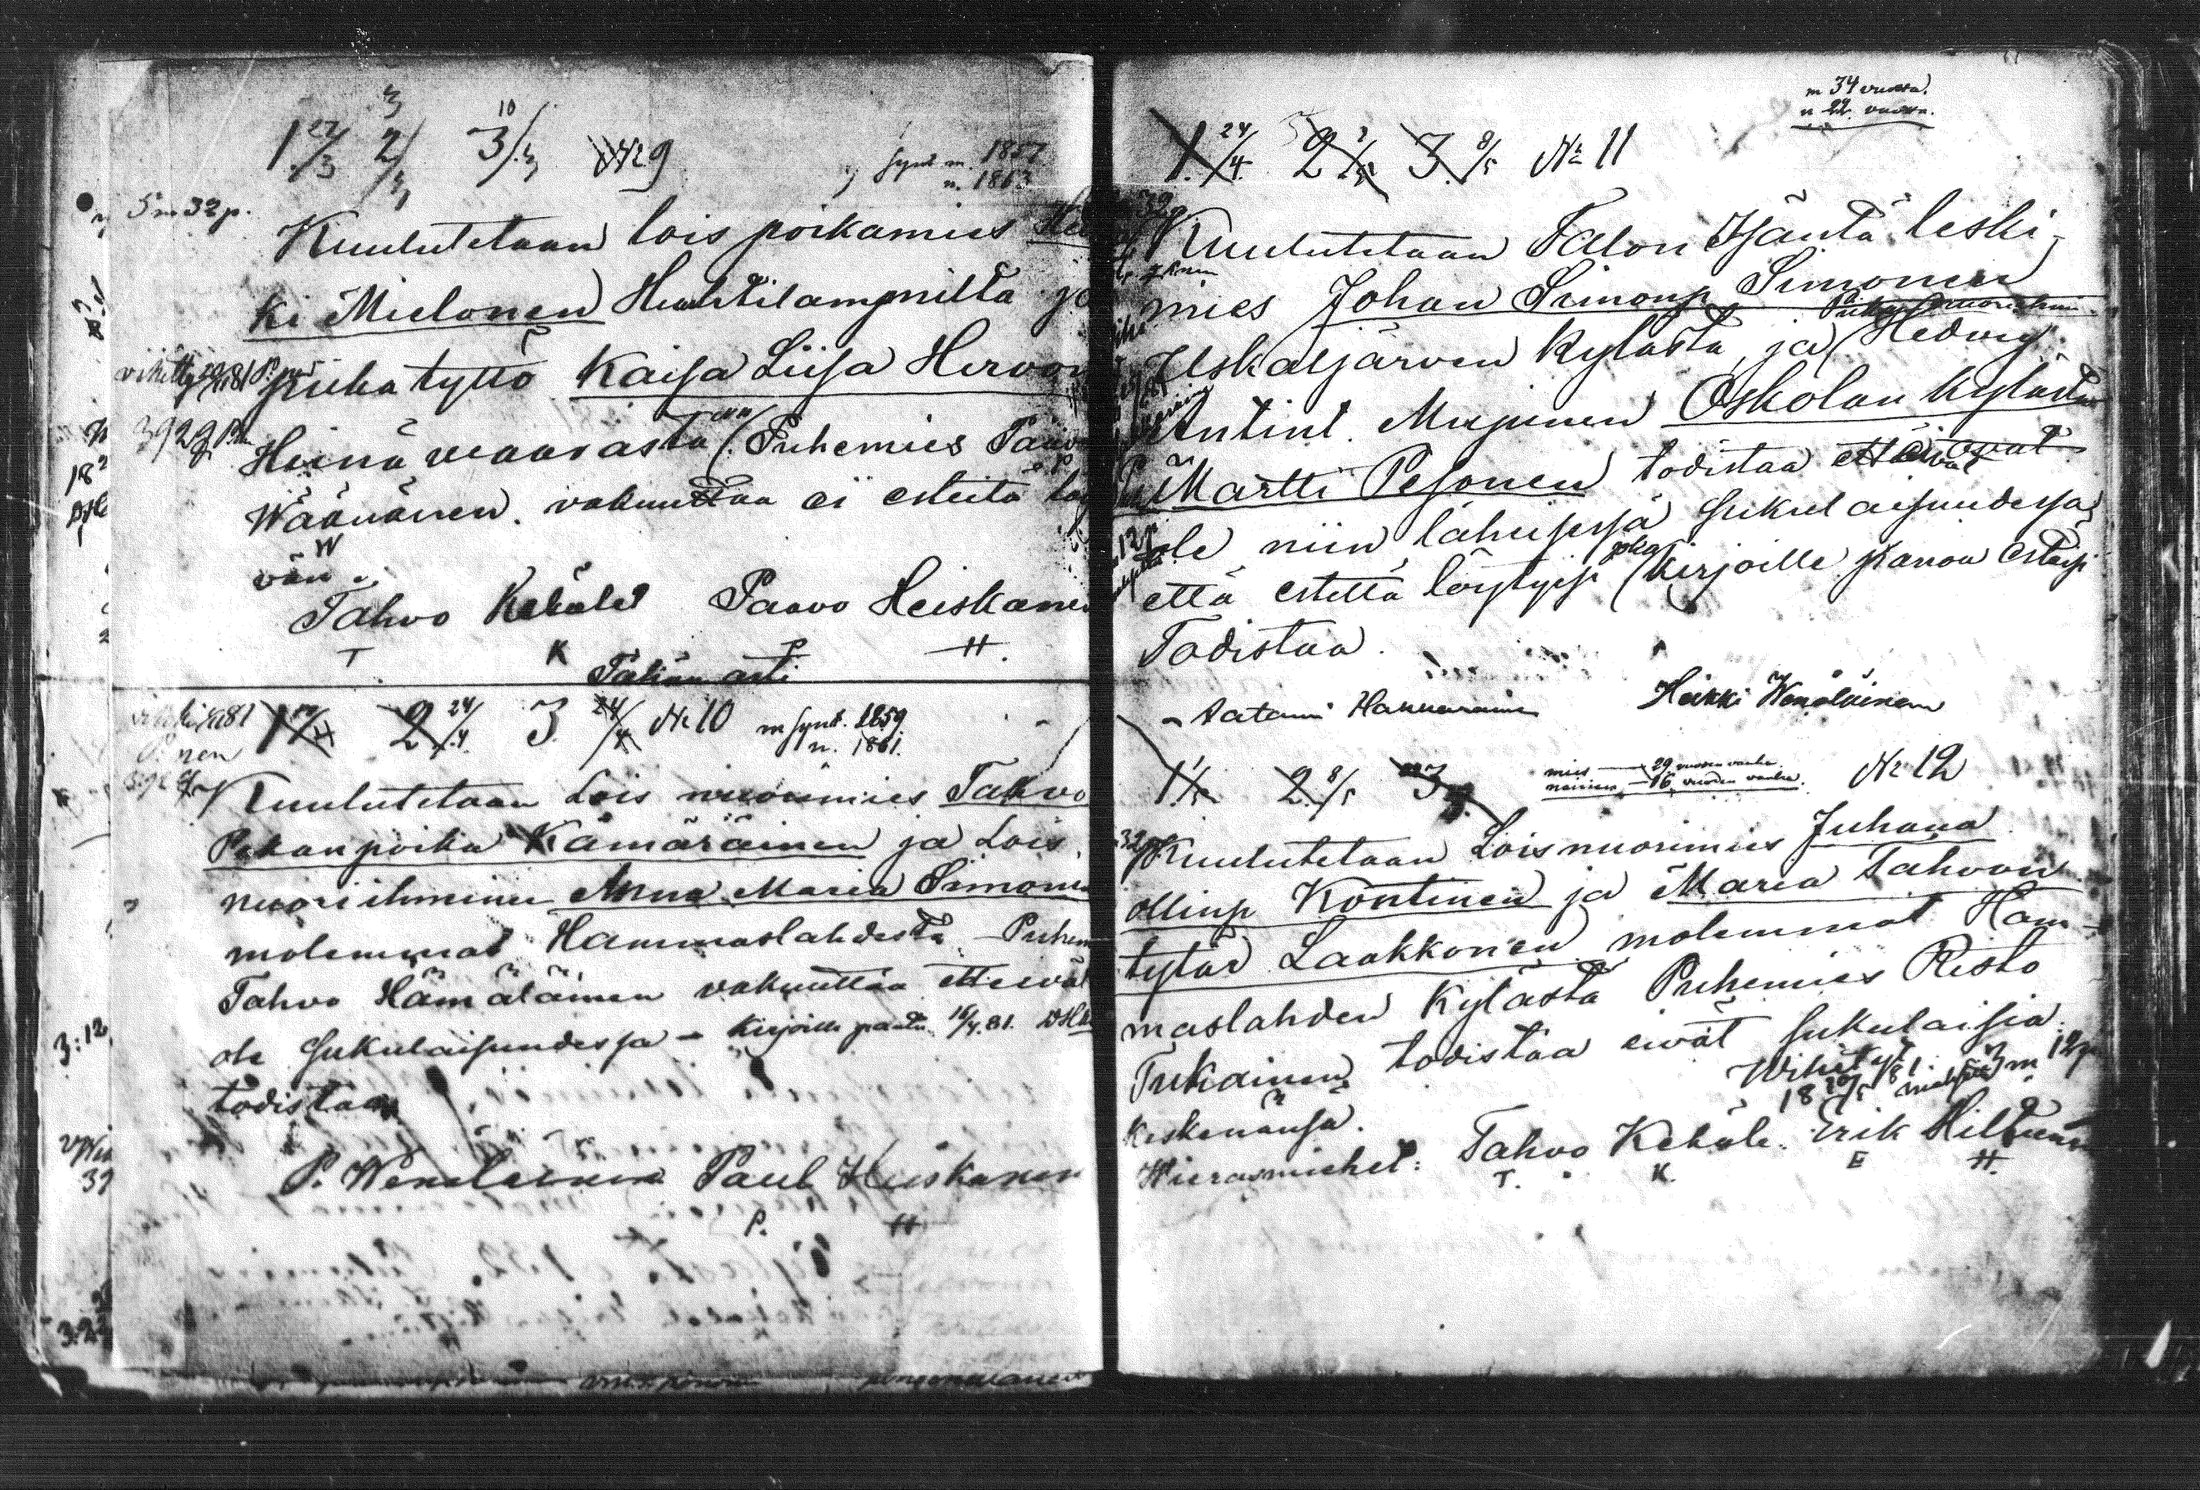 1. 27/3 2/ 3/ 10 №9
synt m. 1857
n. 1863
5 m 32 p.
Kuulutetaan lois poikamies Hei
ki Mielonen Huhtilammilta ja
piika tyttö Kaisa Liisa Hirvon
Heinävaarasta (Puhemies Paavo
Wäänänen. vakuuttaa ei esteitä löy
vän.
Tahvo Kehäle Paavo Heiskanen
T K P H.
Tähän asti
1 17/4 2 24/4 3 №10 m synt. 1859.
n. 1861.
Kuulutetaan Lois nuorimies Tahvo
Pekanpoika Kämäräinen ja Lois
nuori ihminen Anna Maria Simonen
molemmat Hammaslahdesta – Puhem
Tahvo Hämäläinen vakuuttaa etteivät
ole sukulaisuudessa – Kirjoille pantu 16/4.81.
todistaa
P. Wenäläinen Paul Heiskanen
P. H
m 34 vuotta.
n 22 vuotta.
1. 24/4 2 1/5 3. 8/5 № 11
Kuulutetaan Talon Isäntä leski
mies Johan Simonp Simonen
Kylästä ja (Hedvig
Antint. Mujunen Oskolan kylästä
Martti Pesonen todistaa että eivät
ole niin läheisessä sukulaisuudessa
että estettä löytyisi (kirjoille panon
Todistaa.
Aatami Hakkarainen Heikki Wenäläinen
1. 1/5 2. 8/5 3 mies — 29 vuoden vanha.
nainen — 16 vuoden vanha. № 12
Kuulutetaan Loisnuorimies Juhana
Ollinp Kontinen ja Maria Tahvon
tytär Laakkonen molemmat Ham-
maslahden Kylästä Puhemies Risto
Tukainen todistaa eivät sukulaisia
keskenänsä. Wihityt
18 20/5 81 3 m 12 p
Wierasmiehet: Tahvo Kehäle. Erik Hiltunen
T. K. E H.